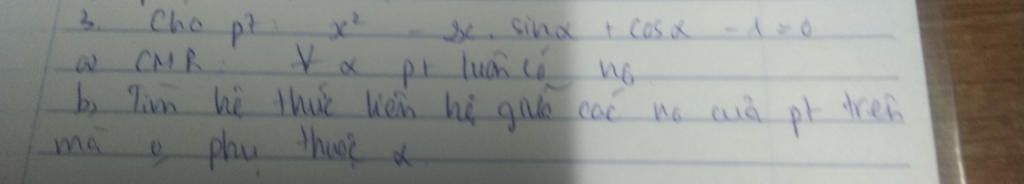 3. Cho pt: x² - 2x. sinα + cosα - 1 = 0
a) CMR: ∀ α pt luôn có no
b) Tìm hệ thức liên hệ giữa các no của pt trên
mà o phụ thuộc α